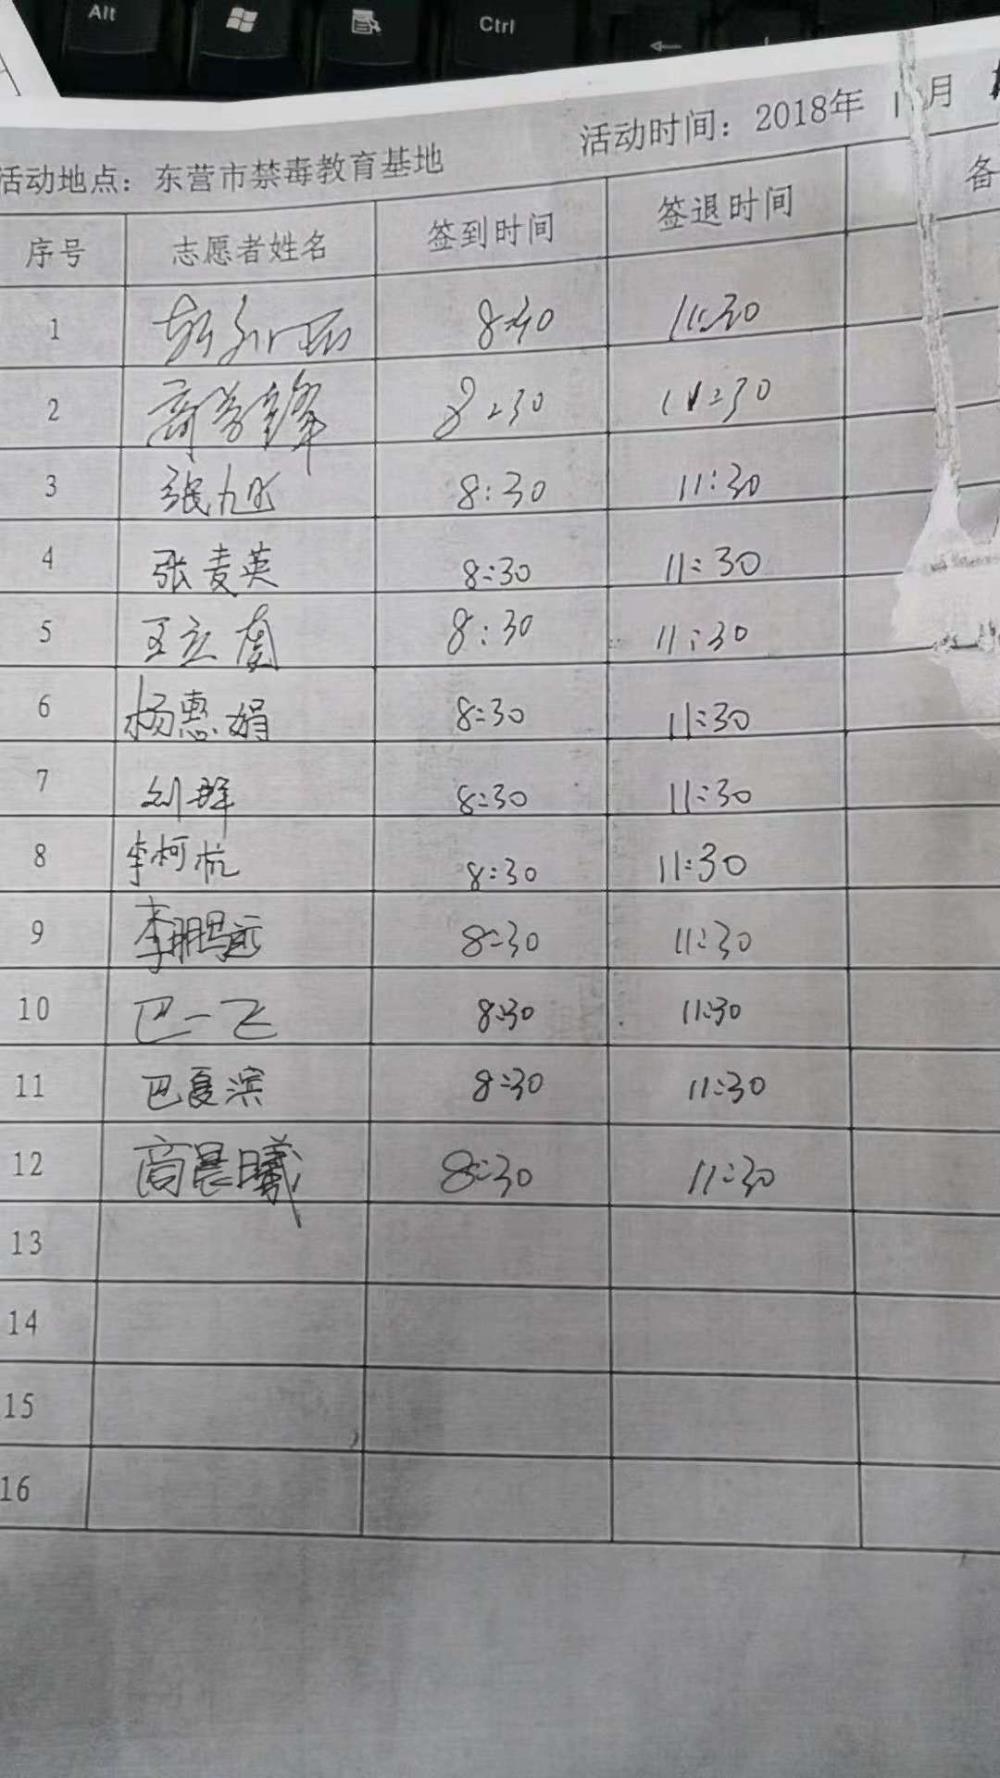 Alt
Ctrl
活动地点：东营市禁毒教育基地 活动时间：2018年 1 月
序号 志愿者姓名 签到时间 签退时间 备
1 8:30 11:30
2 8:30 11:30
3 张 8:30 11:30
4 张麦英 8:30 11:30
5 王立 8:30 11:30
6 杨惠娟 8:30 11:30
7 刘群 8:30 11:30
8 李柯杭 8:30 11:30
9 李鹏远 8:30 11:30
10 巴一飞 8:30 11:30
11 巴夏滨 8:30 11:30
12 商晨曦 8:30 11:30
13
14
15
16